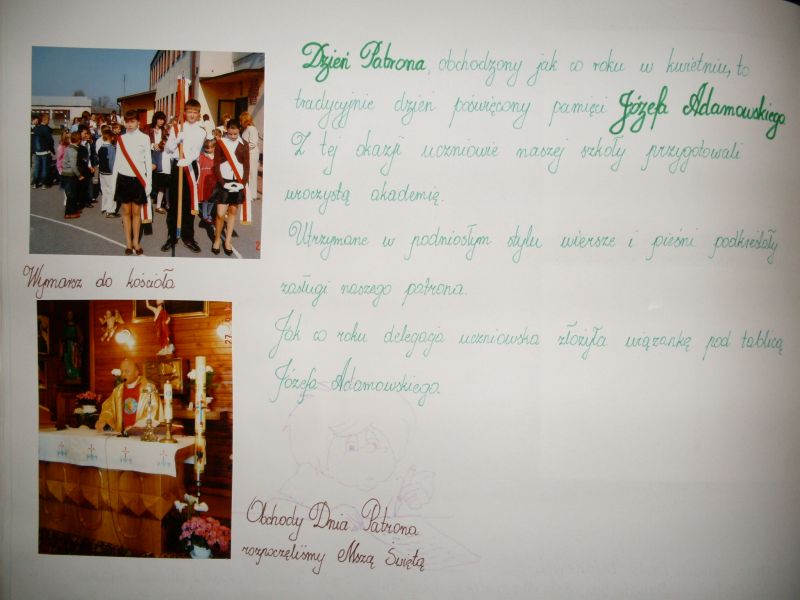 Dzień Patrona, obchodzony jak co roku w kwietniu, to
tradycyjnie dzień poświęcony pamięci Józefa Adamowskiego
Z tej okazji uczniowie naszej szkoły przygotowali
uroczystą akademię.
Utrzymane w podniosłym stylu wiersze i pieśni podkreślały
zasługi naszego patrona.
Jak co roku delegacja uczniowska złożyła wiązankę pod tablicą
Józefa Adamowskiego.
Wymarsz do kościoła
Obchody Dnia Patrona
rozpoczęliśmy Mszą Świętą